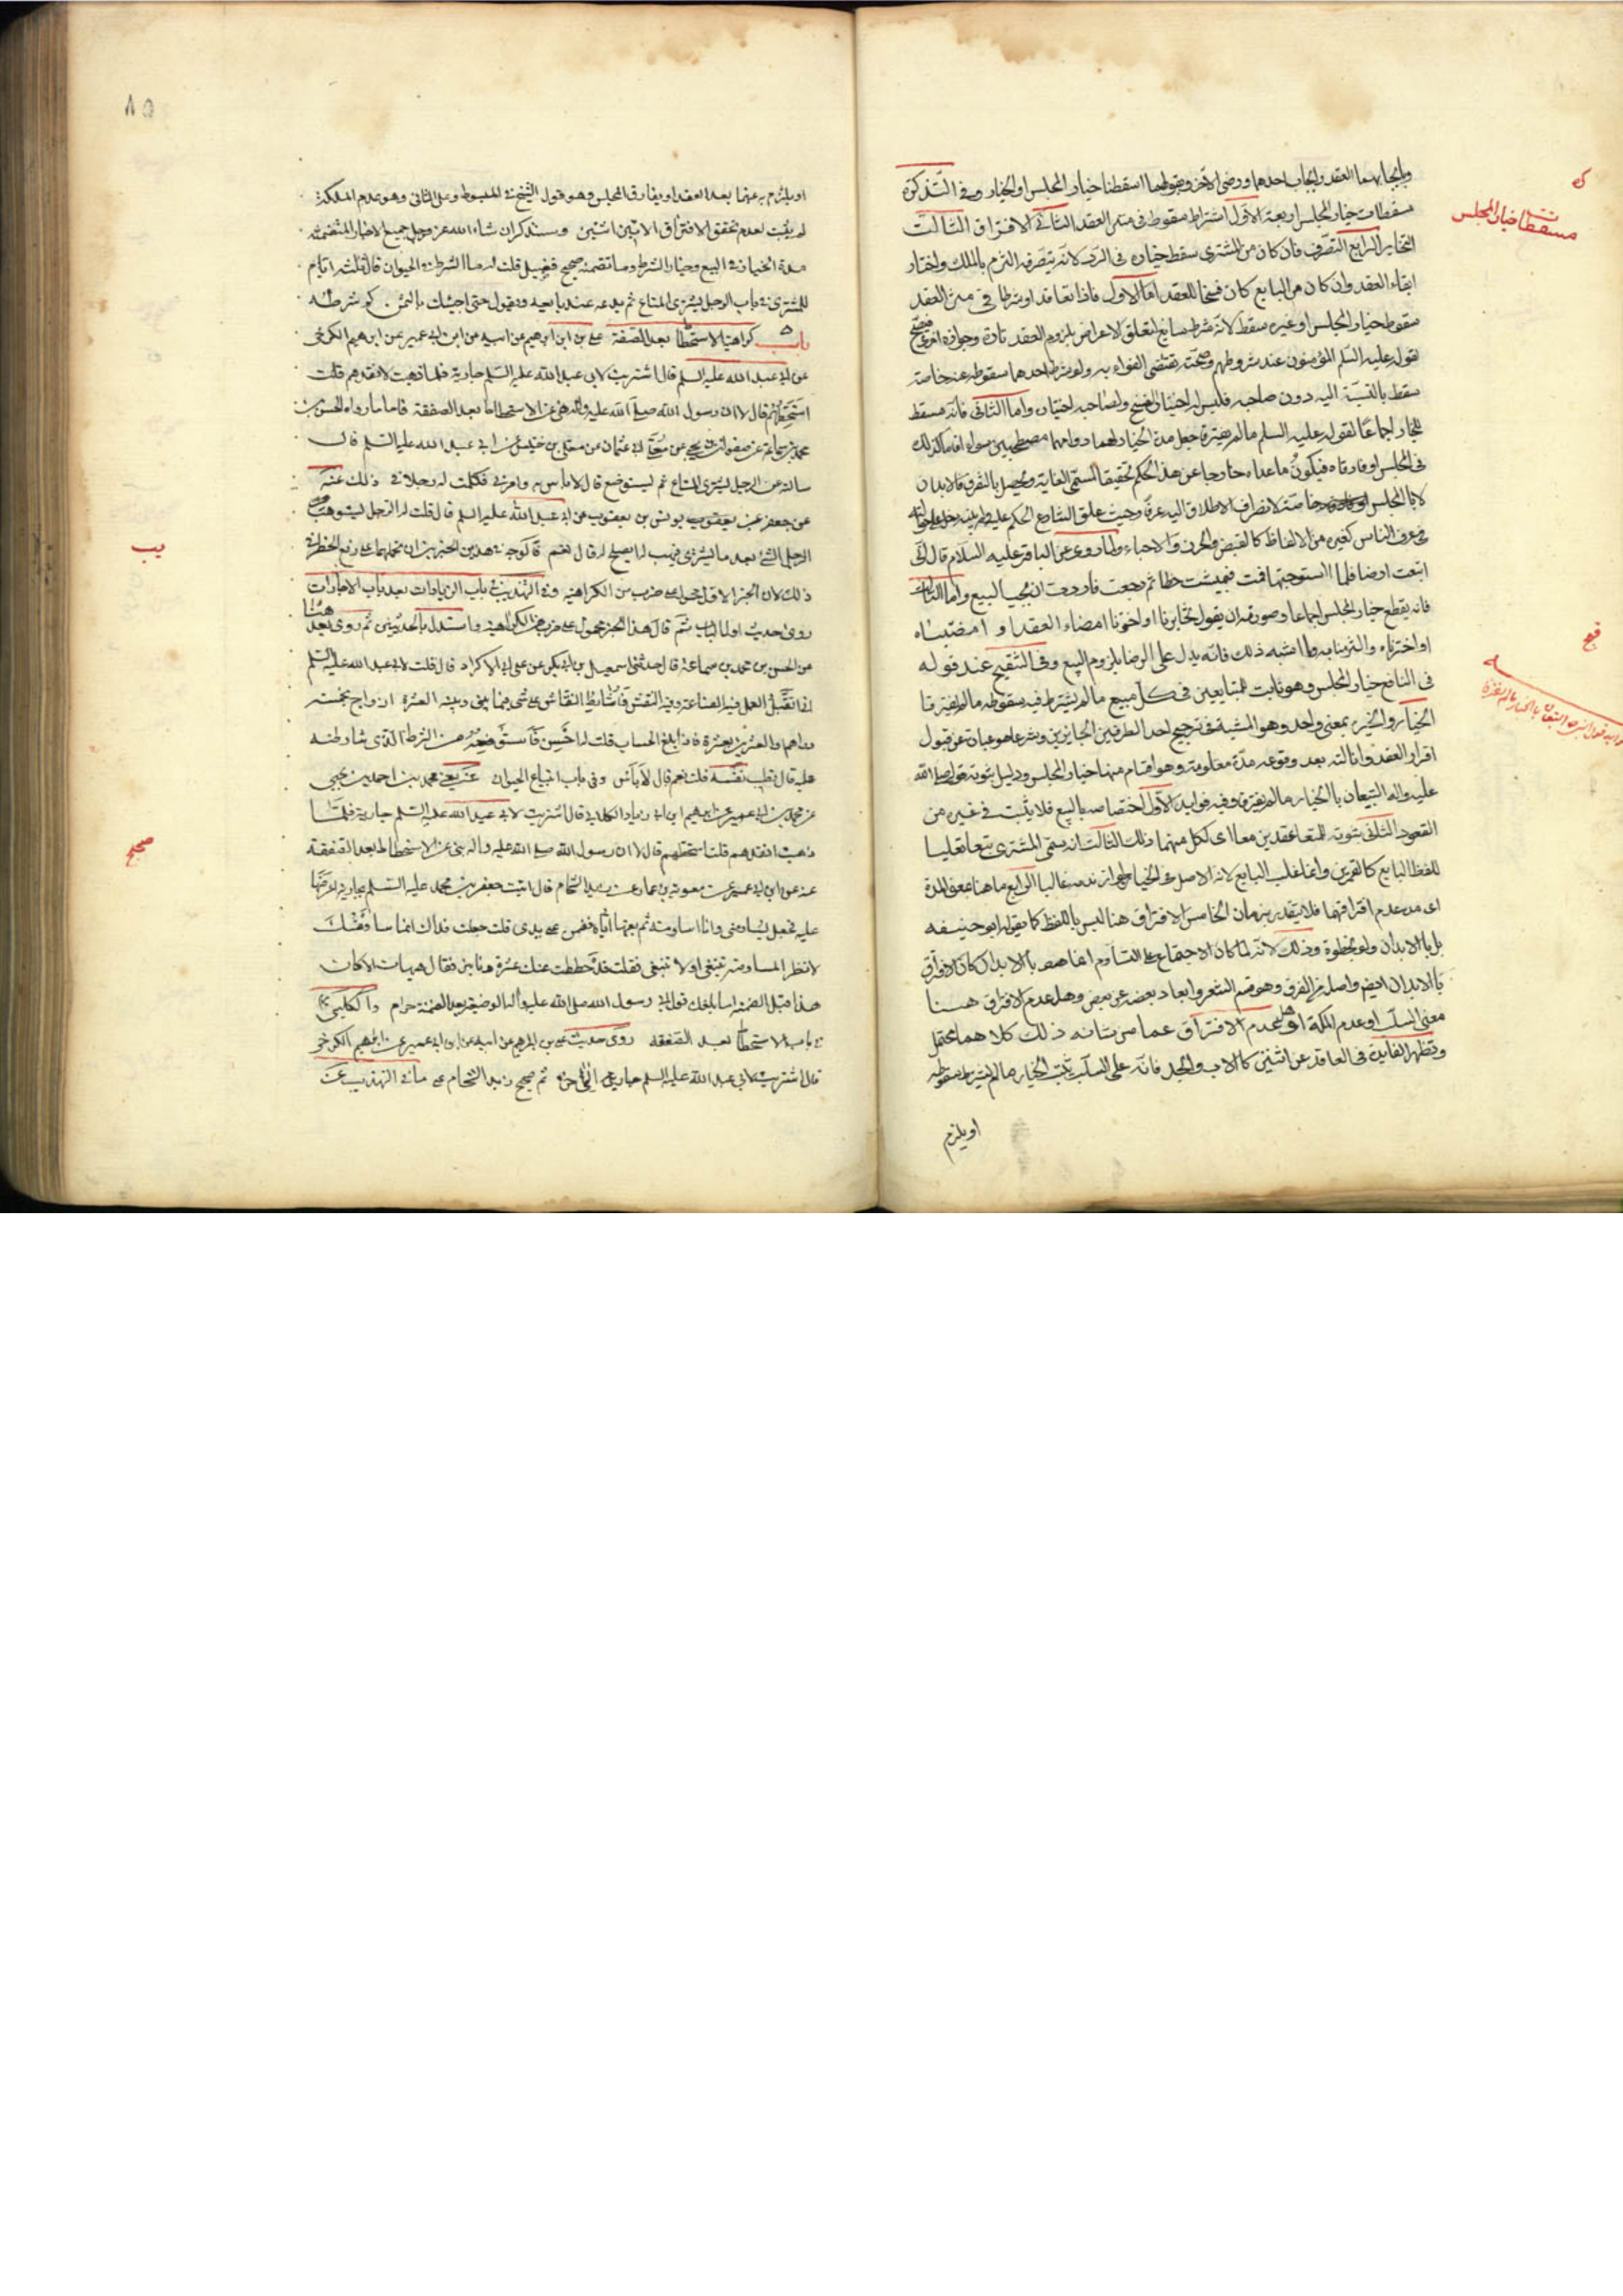 وايجابهما العقد وايجاب احدهما ورضى الآخر وبقولهما اسقطنا خيار المجلس او الخيار وفى التذكرة
مسقطات خيار المجلس اربعة الاول اشتراط سقوطه فى متن العقد الثانى الافتراق الثالث
التخاير الرابع التصرف فان كان من المشترى سقط خياره فى الرد لانه بتصرفه التزم بالملك واختار
ابقاء العقد وان كان من البايع كان فسخا للعقد اما الاول فاذا تعاقدا وشرطا فى متن العقد
سقوط خيار المجلس او غيره سقط لانه شرط سايغ لتعلق الاغراض بلزوم العقد تارة وجوازه اخرى فصح
لقوله عليه السلم المؤمنون عند شروطهم وصحته تقتضى الوفاء به ولو شرط احدهما سقوطه عنه خاصة
سقط بالنسبة اليه دون صاحبه فليس له اختيار الفسخ ولصاحبه اختياره واما الثانى فانه مسقط
للخيار اجماعا لقوله عليه السلم ما لم يفترقا جعل مدة الخيار لهما دوامهما مصطحبين سواء اقاما كذلك
فى المجلس او فارقاه فيكون ما عداه خارجا عن هذا الحكم تحقيقا لمسمى الغاية ويحصل بالتفرق بالابدان
لا بالمجلس خاصة لانصراف الاطلاق اليه عرفا وحيث علق الشارع الحكم عليه ولم يبينه
فى عرف الناس كغيره من الالفاظ كالقبض والحرز والاحياء ولما روى عن الباقر عليه السلام قال انى
ابتعت ارضا فلما استوجبتها قمت فمشيت خطا ثم رجعت فاردت ان يجب البيع واما الثالث
فانه يقطع خيار المجلس اجماعا وصورته ان يقول تخايرنا او اخترنا امضاء العقد او امضيناه
او اخترناه والتزمنا به وما اشبه ذلك فانه يدل على الرضا بلزوم البيع وفى التنقيح عند قوله
فى النافع خيار المجلس وهو ثابت للمتبايعين فى كل مبيع ما لم يشترط فيه سقوطه ما لم يفترقا
الخيار والخير بمعنى واحد وهو المشية فى ترجيح احد الطرفين الجايزين وشرعا هو عبارة عن قبول
اقرار العقد وازالته بعد وقوعه مدة معلومة وهو اقسام منها خيار المجلس ودليل ثبوته قوله صلى الله
عليه واله البيعان بالخيار ما لم يفترقا وفيه فوايد الاول اختصاصه بالبيع فلا يثبت فى غيره من
العقود الثانى ثبوته للمتعاقدين معا اى لكل منهما ذلك الثالث انه سمى المشترى بيعا تغليبا
للفظ البايع كالقمرين وانما غلب البايع لانه الاصل فى الخيار لجواز ندمه غالبا الرابع ما هنا بمعنى المدة
اى مدة عدم افتراقهما فلا يتقدر بزمان الخامس الافتراق هنا ليس باللفظ كما يقوله ابو حنيفه
بل بالابدان ولو بخطوة وذلك لانه لما كان الاجتماع على التساوم انما هو بالابدان كان الافتراق
بالابدان ايضا واصله من الفرق وهو قسم الشعر وابعاد بعضه عن بعض وهل عدم الافتراق هنا
معنى السلب او عدم الملكة اى عدم الافتراق عما من شانه ذلك كلاهما محتمل
وتظهر الفايدة فى العاقد عن اثنين كالاب والجد فانه على السلب يثبت الخيار ما لم يشترط سقوطه
او يلزم
مسقطات خيار المجلس
قيح
٨٥
او يلزم به عنهما بعد العقد او يفارق المجلس وهو قول الشيخ فى المبسوط وعلى الثانى وهو عدم الملكة
لم يثبت لعدم تحقق الافتراق الا بين اثنين وسنذكر ان شاء الله عز وجل جميع الاخبار المتضمنة
مدة الخيار فى البيع وخيار الشرط وما تضمنه صحيح فضيل قلت له ما الشرط فى الحيوان قال ثلثة ايام
للمشترى فى باب الرجل يشترى المتاع ثم يدعه عند بايعه ويقول حتى اجيئك بالثمن
باب كراهية الاستحطاط بعد الصفقة على بن ابراهيم عن ابيه عن ابن ابى عمير عن ابراهيم الكرخى
عن ابى عبد الله عليه السلم قال اشتريت لابى عبد الله عليه السلم جارية فلما ذهبت لانقدهم قلت
استحطهم قال لا ان رسول الله صلى الله عليه واله نهى عن الاستحطاط بعد الصفقة فاما ما رواه الحسن بن
محمد بن سماعة عن صفوان بن يحيى عن ابى عثمان عن معلى بن خنيس عن ابى عبد الله عليه السلم قال
سالته عن الرجل يشترى المتاع ثم يستوضع قال لا باس به وامرنى فكلمت له رجلا فى ذلك عنه
عن جعفر عن يعقوب يونس بن يعقوب عن ابى عبد الله عليه السلم قال قلت له الرجل يستوهب من
الرجل الشئ بعد ما يشترى فيهب له ايصلح له قال نعم فالوجه فى هذين الخبرين ان نحملهما على رفع الحظر فى
ذلك لان الخبر الاول محمول على ضرب من الكراهية وفى التهذيب فى باب الزيادات بعد باب الاجارات
روى حديث اول الباب ثم قال هذا الخبر محمول على ضرب من الكراهية واستدل بالحديثين ثم روى بعد
عن الحسن بن محمد بن سماعة قال حدثنى اسمعيل بن ابى بكر عن على ابى الاكراد قال قلت لابى عبد الله عليه السلم
انى اتقبل العمل فيه الصناعة وفيه النقش فاشارط النقاش على شئ فيما بينى وبينه العشرة ازواج بخمسة
دراهم والعشرين بعشرة فاذا بلغ الحساب قلت له احسن فاستوضعه من الشرط الذى شارطته
عليه قال بطيب نفسه قلت نعم قال لا باس وفى باب ابتياع الحيوان محمد بن احمد بن يحيى
عن محمد بن ابى عمير عن ابراهيم ابن ابى زياد الكلابى قال اشتريت لابى عبد الله عليه السلم جارية فلما
ذهبت انقدهم قلت استحطهم قال لا ان رسول الله صلى الله عليه واله نهى عن الاستحطاط بعد الصفقة
عنه عن ابن ابى عمير عن معوية بن عمار عن زيد الشحام قال اتيت جعفر بن محمد عليه السلم بجارية اعرضها
عليه فجعل يساومنى وانا اساومه ثم بعتها اياه فضمن على يدى قلت جعلت فداك انما ساومتك
لانظر المساومة تنبغى او لا تنبغى فقلت قد حططت عنك عشرة دنانير فقال هيهات الا كان
هذا قبل الضمنة اما بلغك قول رسول الله صلى الله عليه واله الوضيعة بعد الضمنة حرام
فى باب الاستحطاط بعد الصفقة روى حديث على بن ابراهيم عن ابيه عن ابن ابى عمير عن ابراهيم الكرخى
قال اشتريت لابى عبد الله عليه السلم جارية الى اخره ثم صحيح زيد الشحام على ما فى التهذيب عن
يب
صحيح